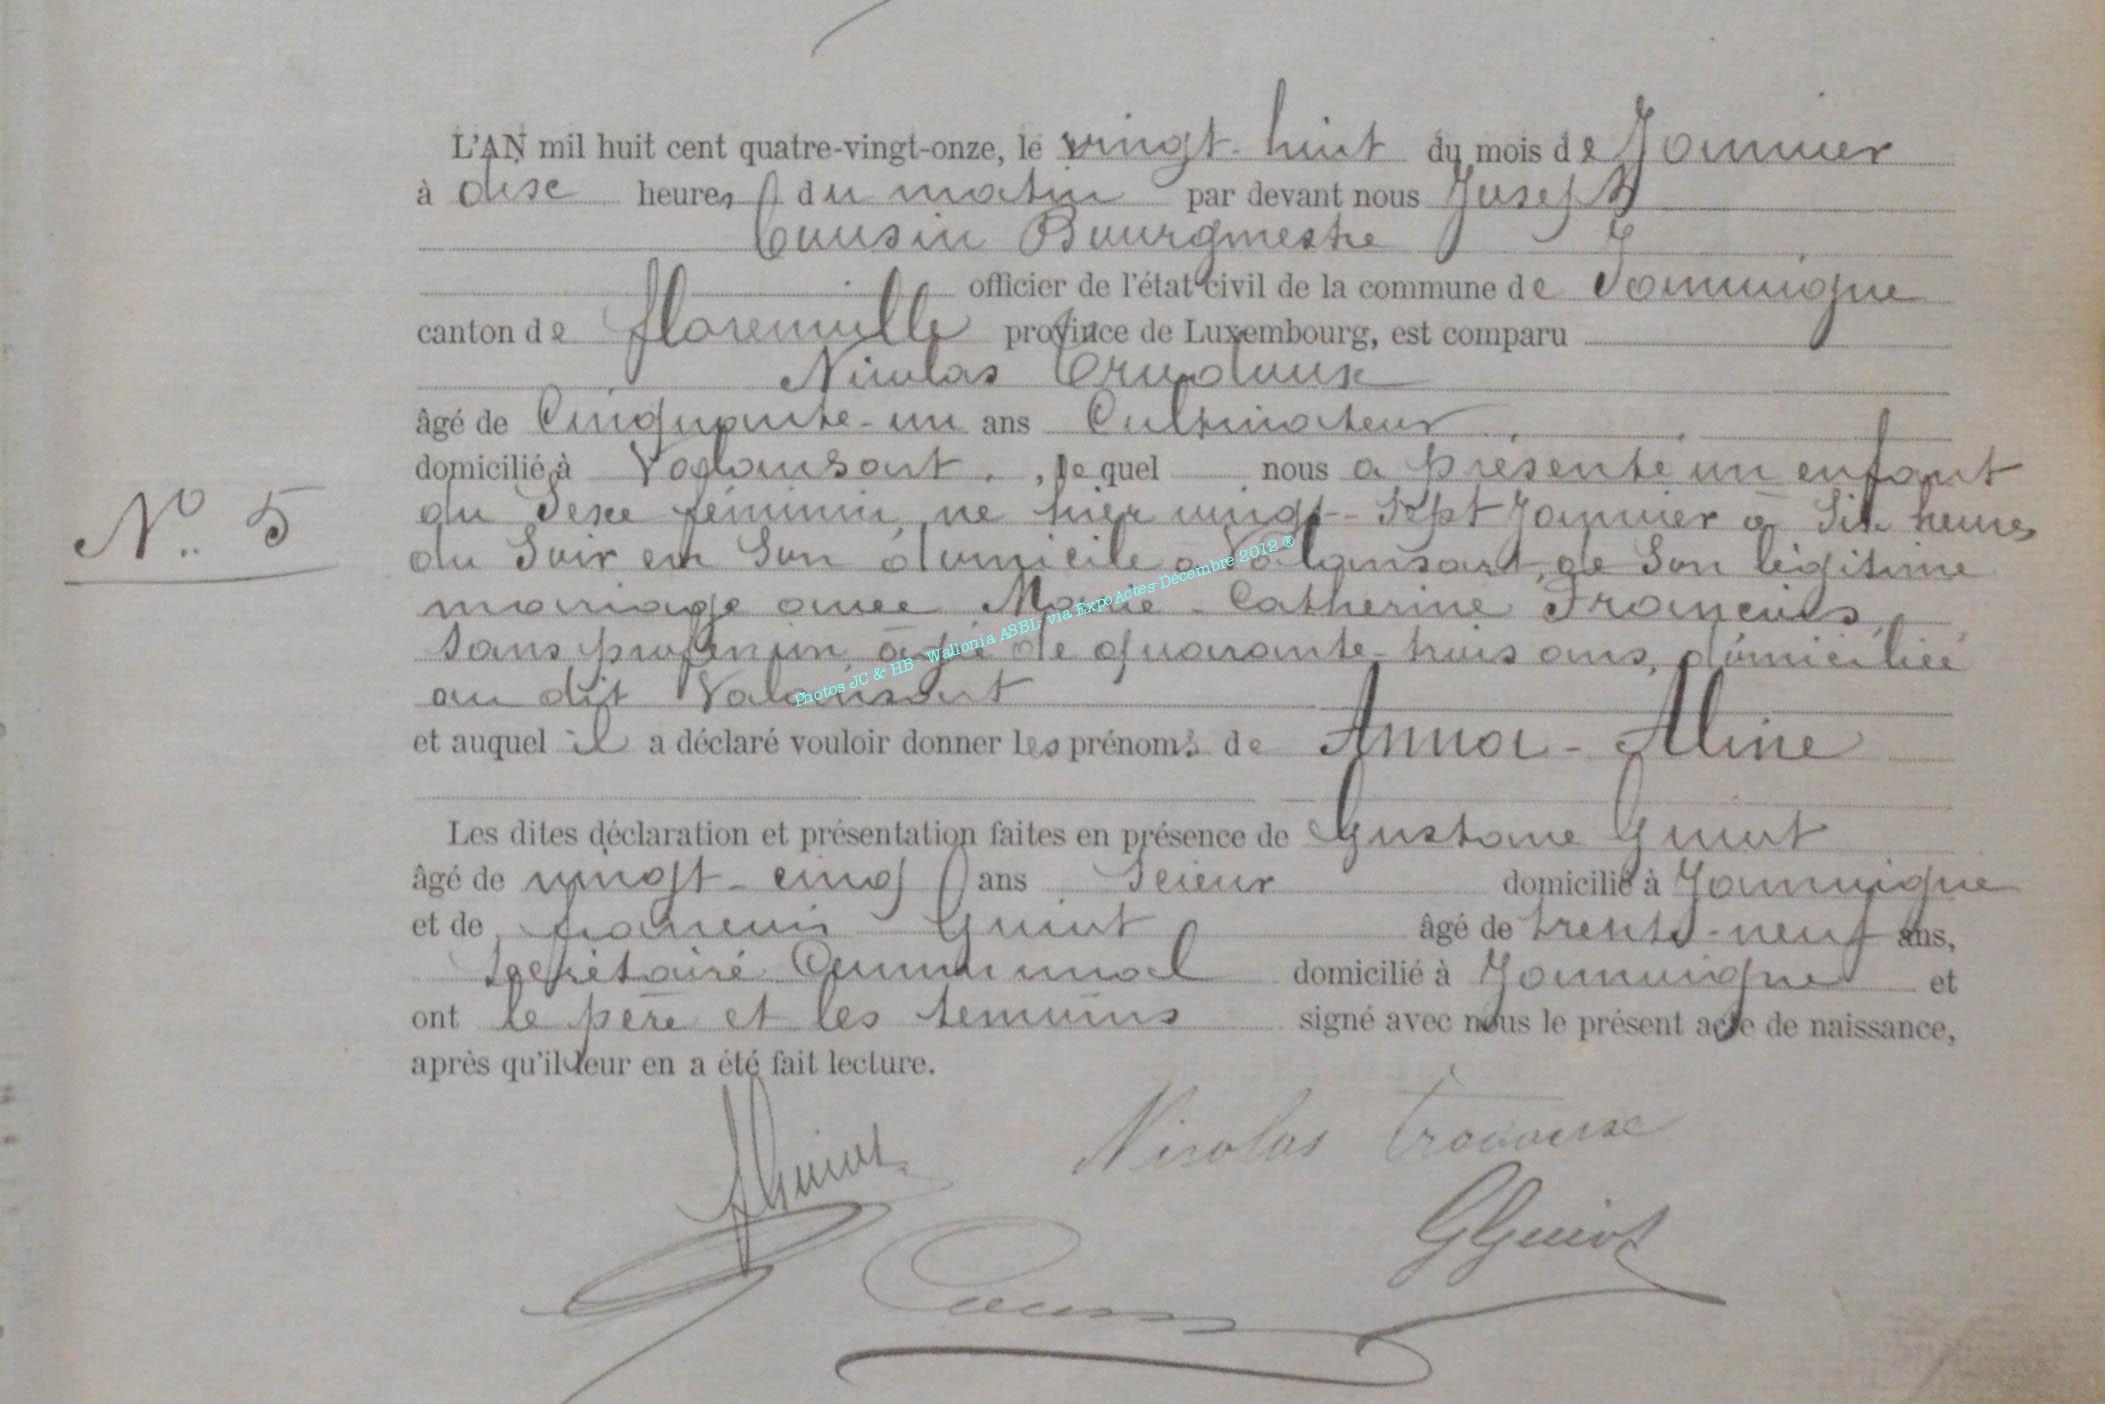 L'AN mil huit cent quatre-vingt-onze, le vingt-huit du mois de Janvier
à dix heures du matin par devant nous Joseph
Cousin Bourgmestre
officier de l'état civil de la commune de Jamoigne
canton de florenville province de Luxembourg, est comparu
Nicolas
âgé de Cinquante-un ans Cultivateur
domicilié à Valansart, le quel nous a présenté un enfant
N° 5
du Sexe féminin, né hier vingt-Sept Janvier à Six heures
du Soir en Son domicile à Valansart, de Son légitime
mariage avec Marie-Catherine François,
Sans profession, âgée de quarante-trois ans, domiciliée
au dit Valansart
et auquel il a déclaré vouloir donner les prénoms de Anna-Aline
Les dites déclaration et présentation faites en présence de Gustave Guiot
âgé de vingt-cinq ans Scieur domicilié à Jamoigne
et de françois Guiot âgé de trente-neuf ans,
Secrétaire Communal domicilié à Jamoigne et
ont le père et les témoins signé avec nous le présent acte de naissance,
après qu'il leur en a été fait lecture.
Photos JC & HB - Wallonia ASBL- via Expo Actes-Décembre 2012 ®
FGuiot Nicolas
GGuiot
Cousin